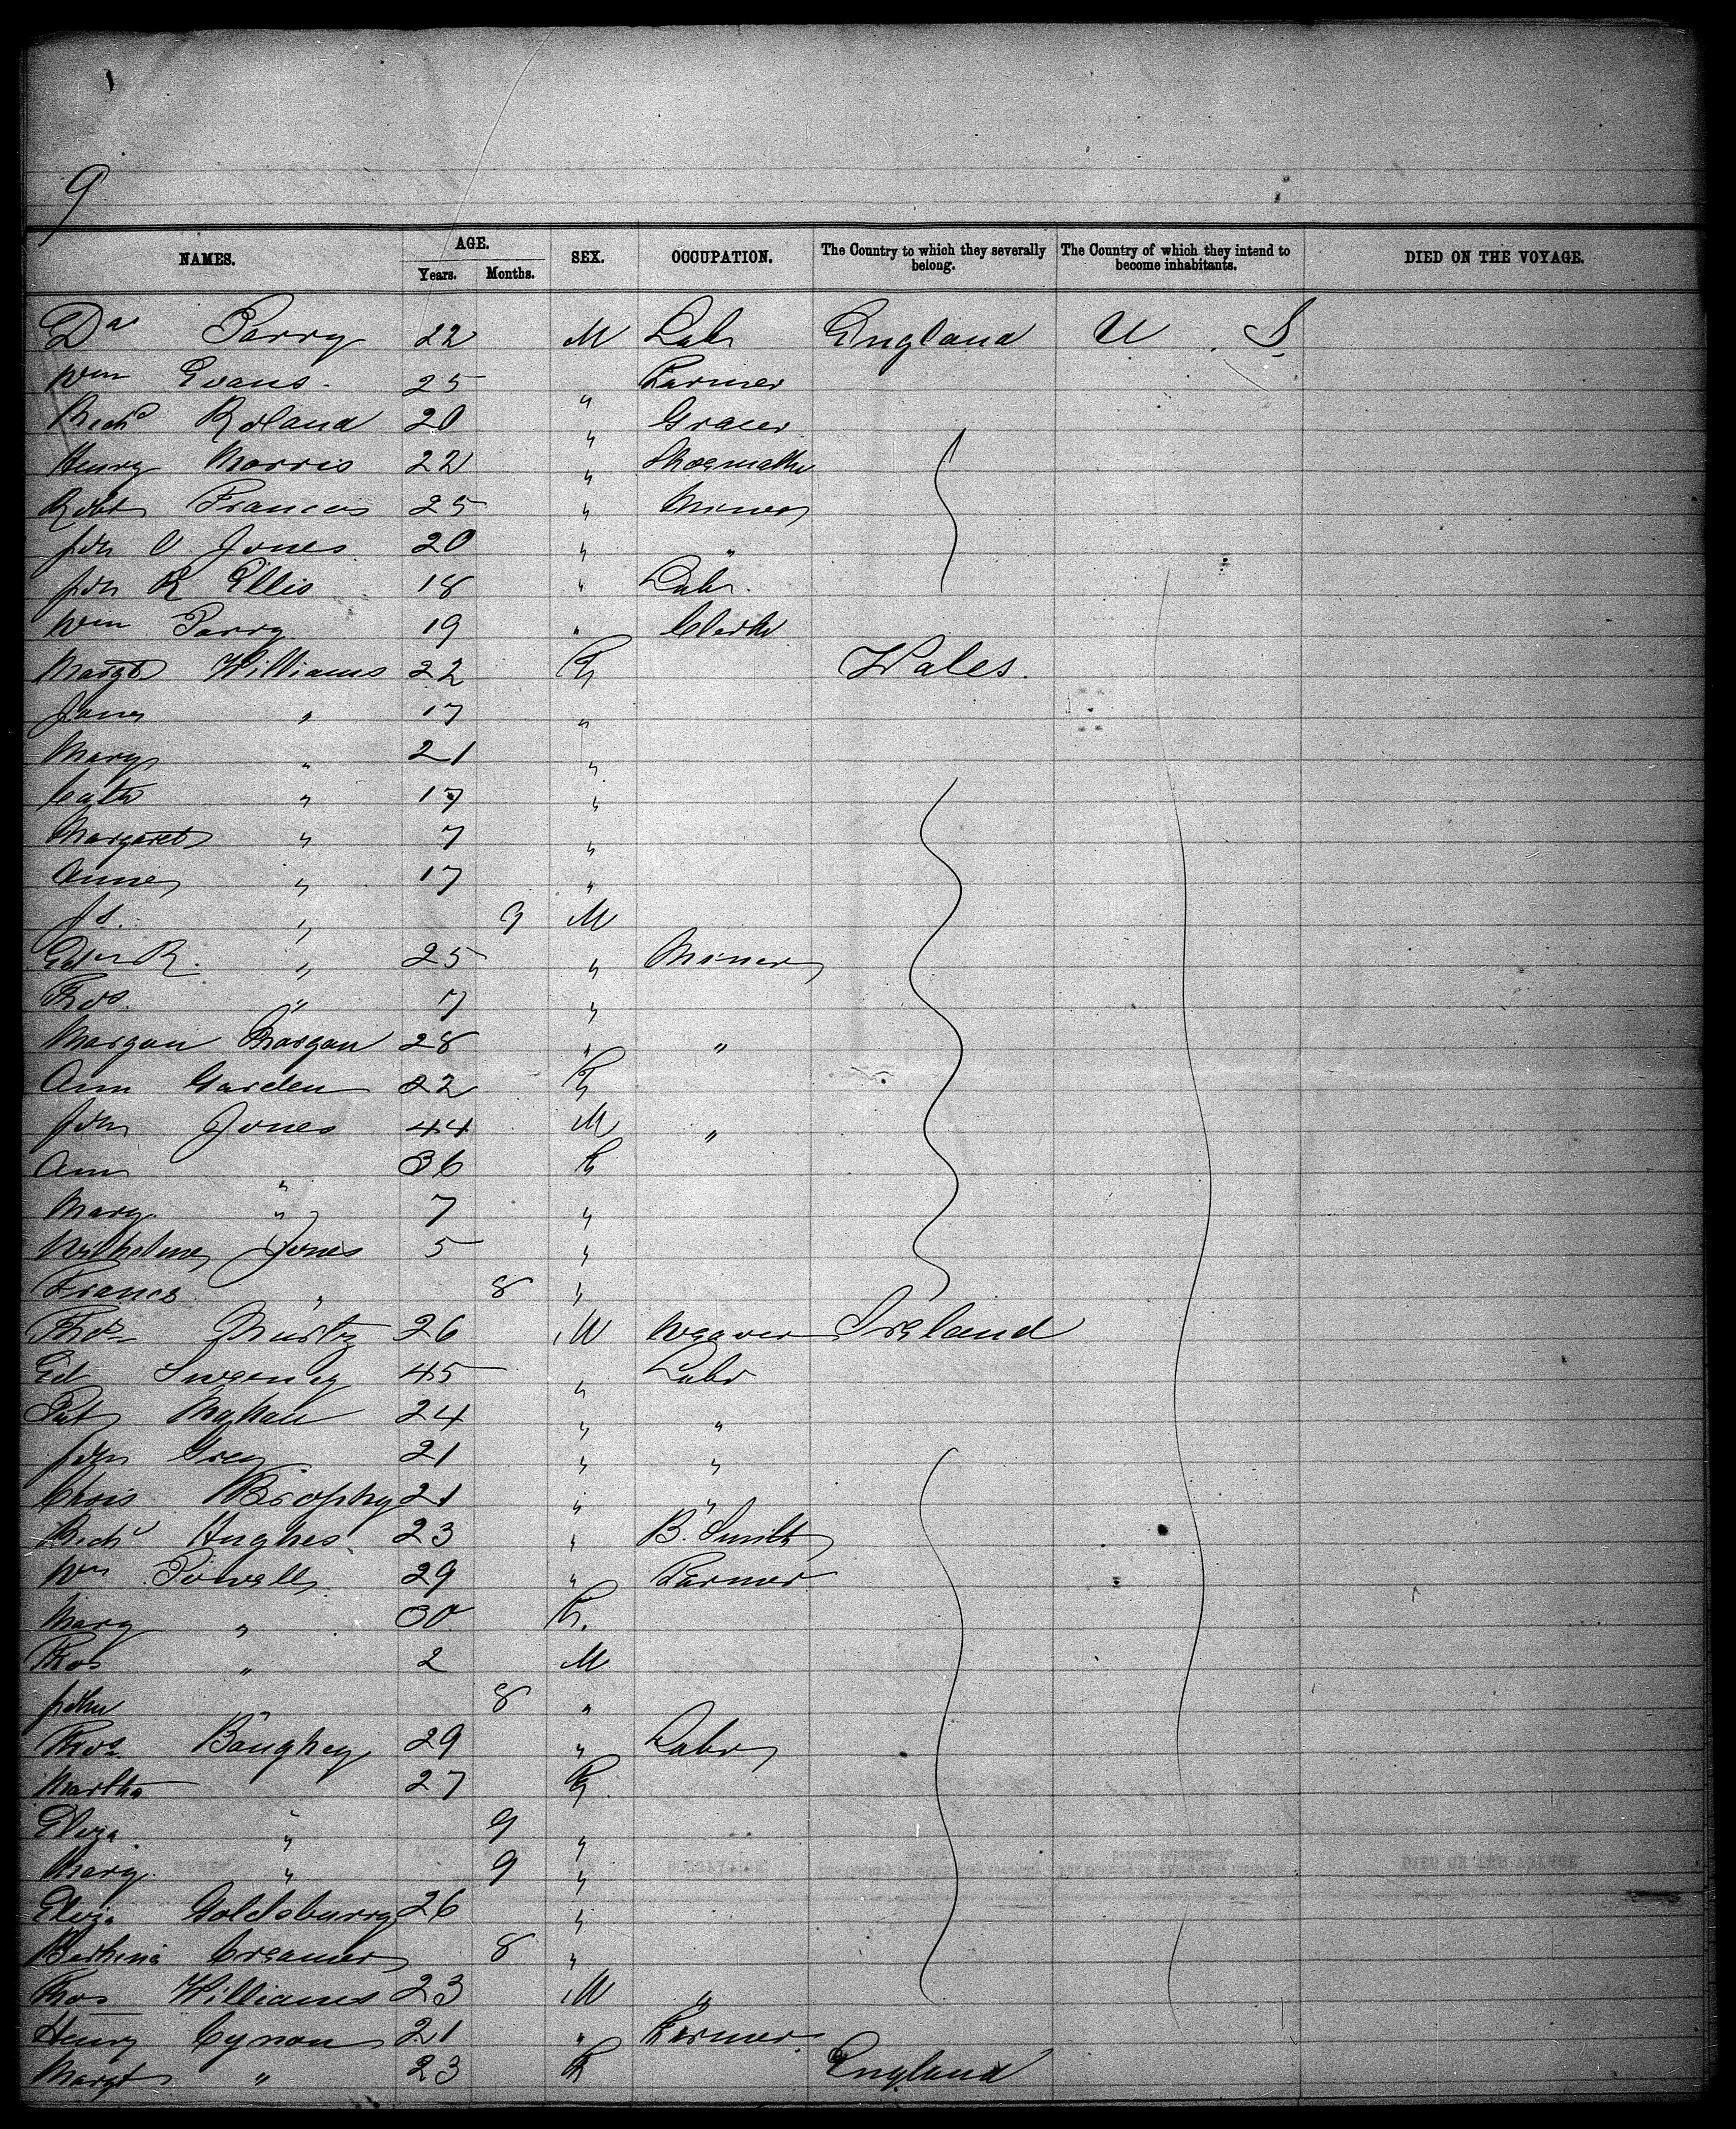 9
NAMES. AGE. Years. Months. SEX. OCCUPATION. The Country to which they severally belong. The Country of which they intend to become inhabitants. DIED ON THE VOYAGE.
Da Parry 22 M Labr England U S
Wm Evans 25 " Farmer
Richd Roland 20 " Grocer
Henry Morris 22 " Shoemaker
Robt Francis 25 " Miner
Jon O Jones 20 " "
Jon R Ellis 18 " Labr
Wm Parry 19 " Clerk
Margt Williams 22 F Wales
Jane " 17 "
Mary " 21 "
Cath " 17 "
Margaret " 7 "
Anne " 17 "
Js. " 9 M
Edw R. " 25 " Miner
Thos. " 7 "
Morgan Morgan 28 " "
Ann Garden 22 F
Jon Jones 44 M "
Ann " 36 F
Mary " 7 "
Wilhelmina Jones 5 "
Francs " 8 "
Thos 26 M Weaver Ireland
Ed Sweeney 45 " Labr
Pat Mahan 24 " "
John Grey 21 " "
Chris Brophy 21 " "
Richd Hughes 23 " B. Smith
Wm Powell 29 " Farmer
Mary " 30 F.
Thos " 2 M
John " 8 "
Thos Baughey 29 " Labr
Martha 27 F
Eliza " 9 "
Mary " 9 "
Eliza Goldsburry 26 "
Creamer 8 "
Thos Williams 23 M "
Henry Cynon 21 " Farmer
Margt " 23 F England